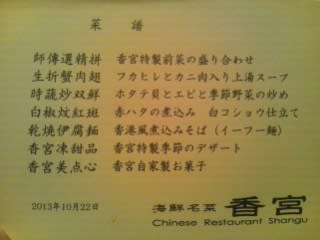 菜 譜
師傅選精拼 香宮特製前菜の盛り合わせ
生折蟹肉翅 フカヒレとカニ肉入り上湯スープ
時蔬炒双鮮 ホタテ貝とエビと季節野菜の炒め
白椒炆紅斑 赤ハタの煮込み 白コショウ仕立て
乾焼伊腐麺 香港風煮込みそば(イーフー麺)
香宮凍甜品 香宮特製季節のデザート
香宮美点心 香宮自家製お菓子
2013年10月22日
海鮮名菜 香宮
Chinese Restaurant Shangu